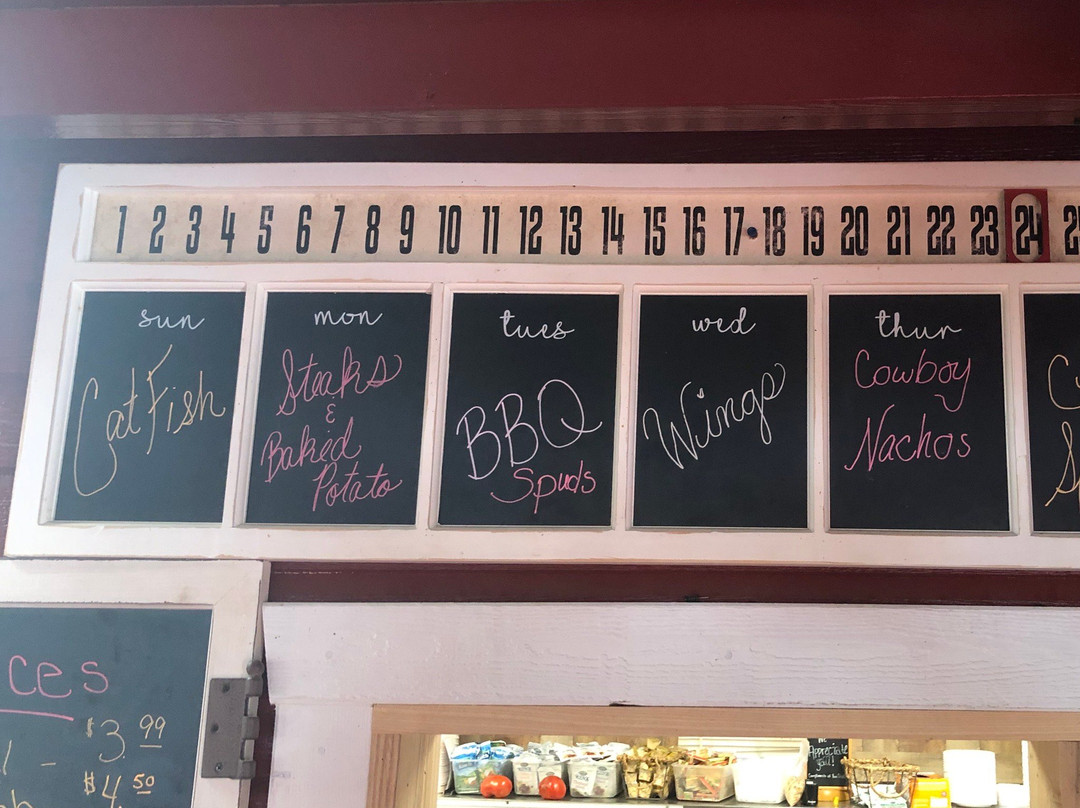 1 2 3 4 5 6 7 8 9 10 11 12 13 14 15 16 17 18 19 20 21 22 23 24
sun
CatFish
mon
Steaks
&
Baked
Potato
tues
BBQ
Spuds
wed
Wings
thur
Cowboy
Nachos
ces
$3.99
$4.50
Appreciate
y'all!